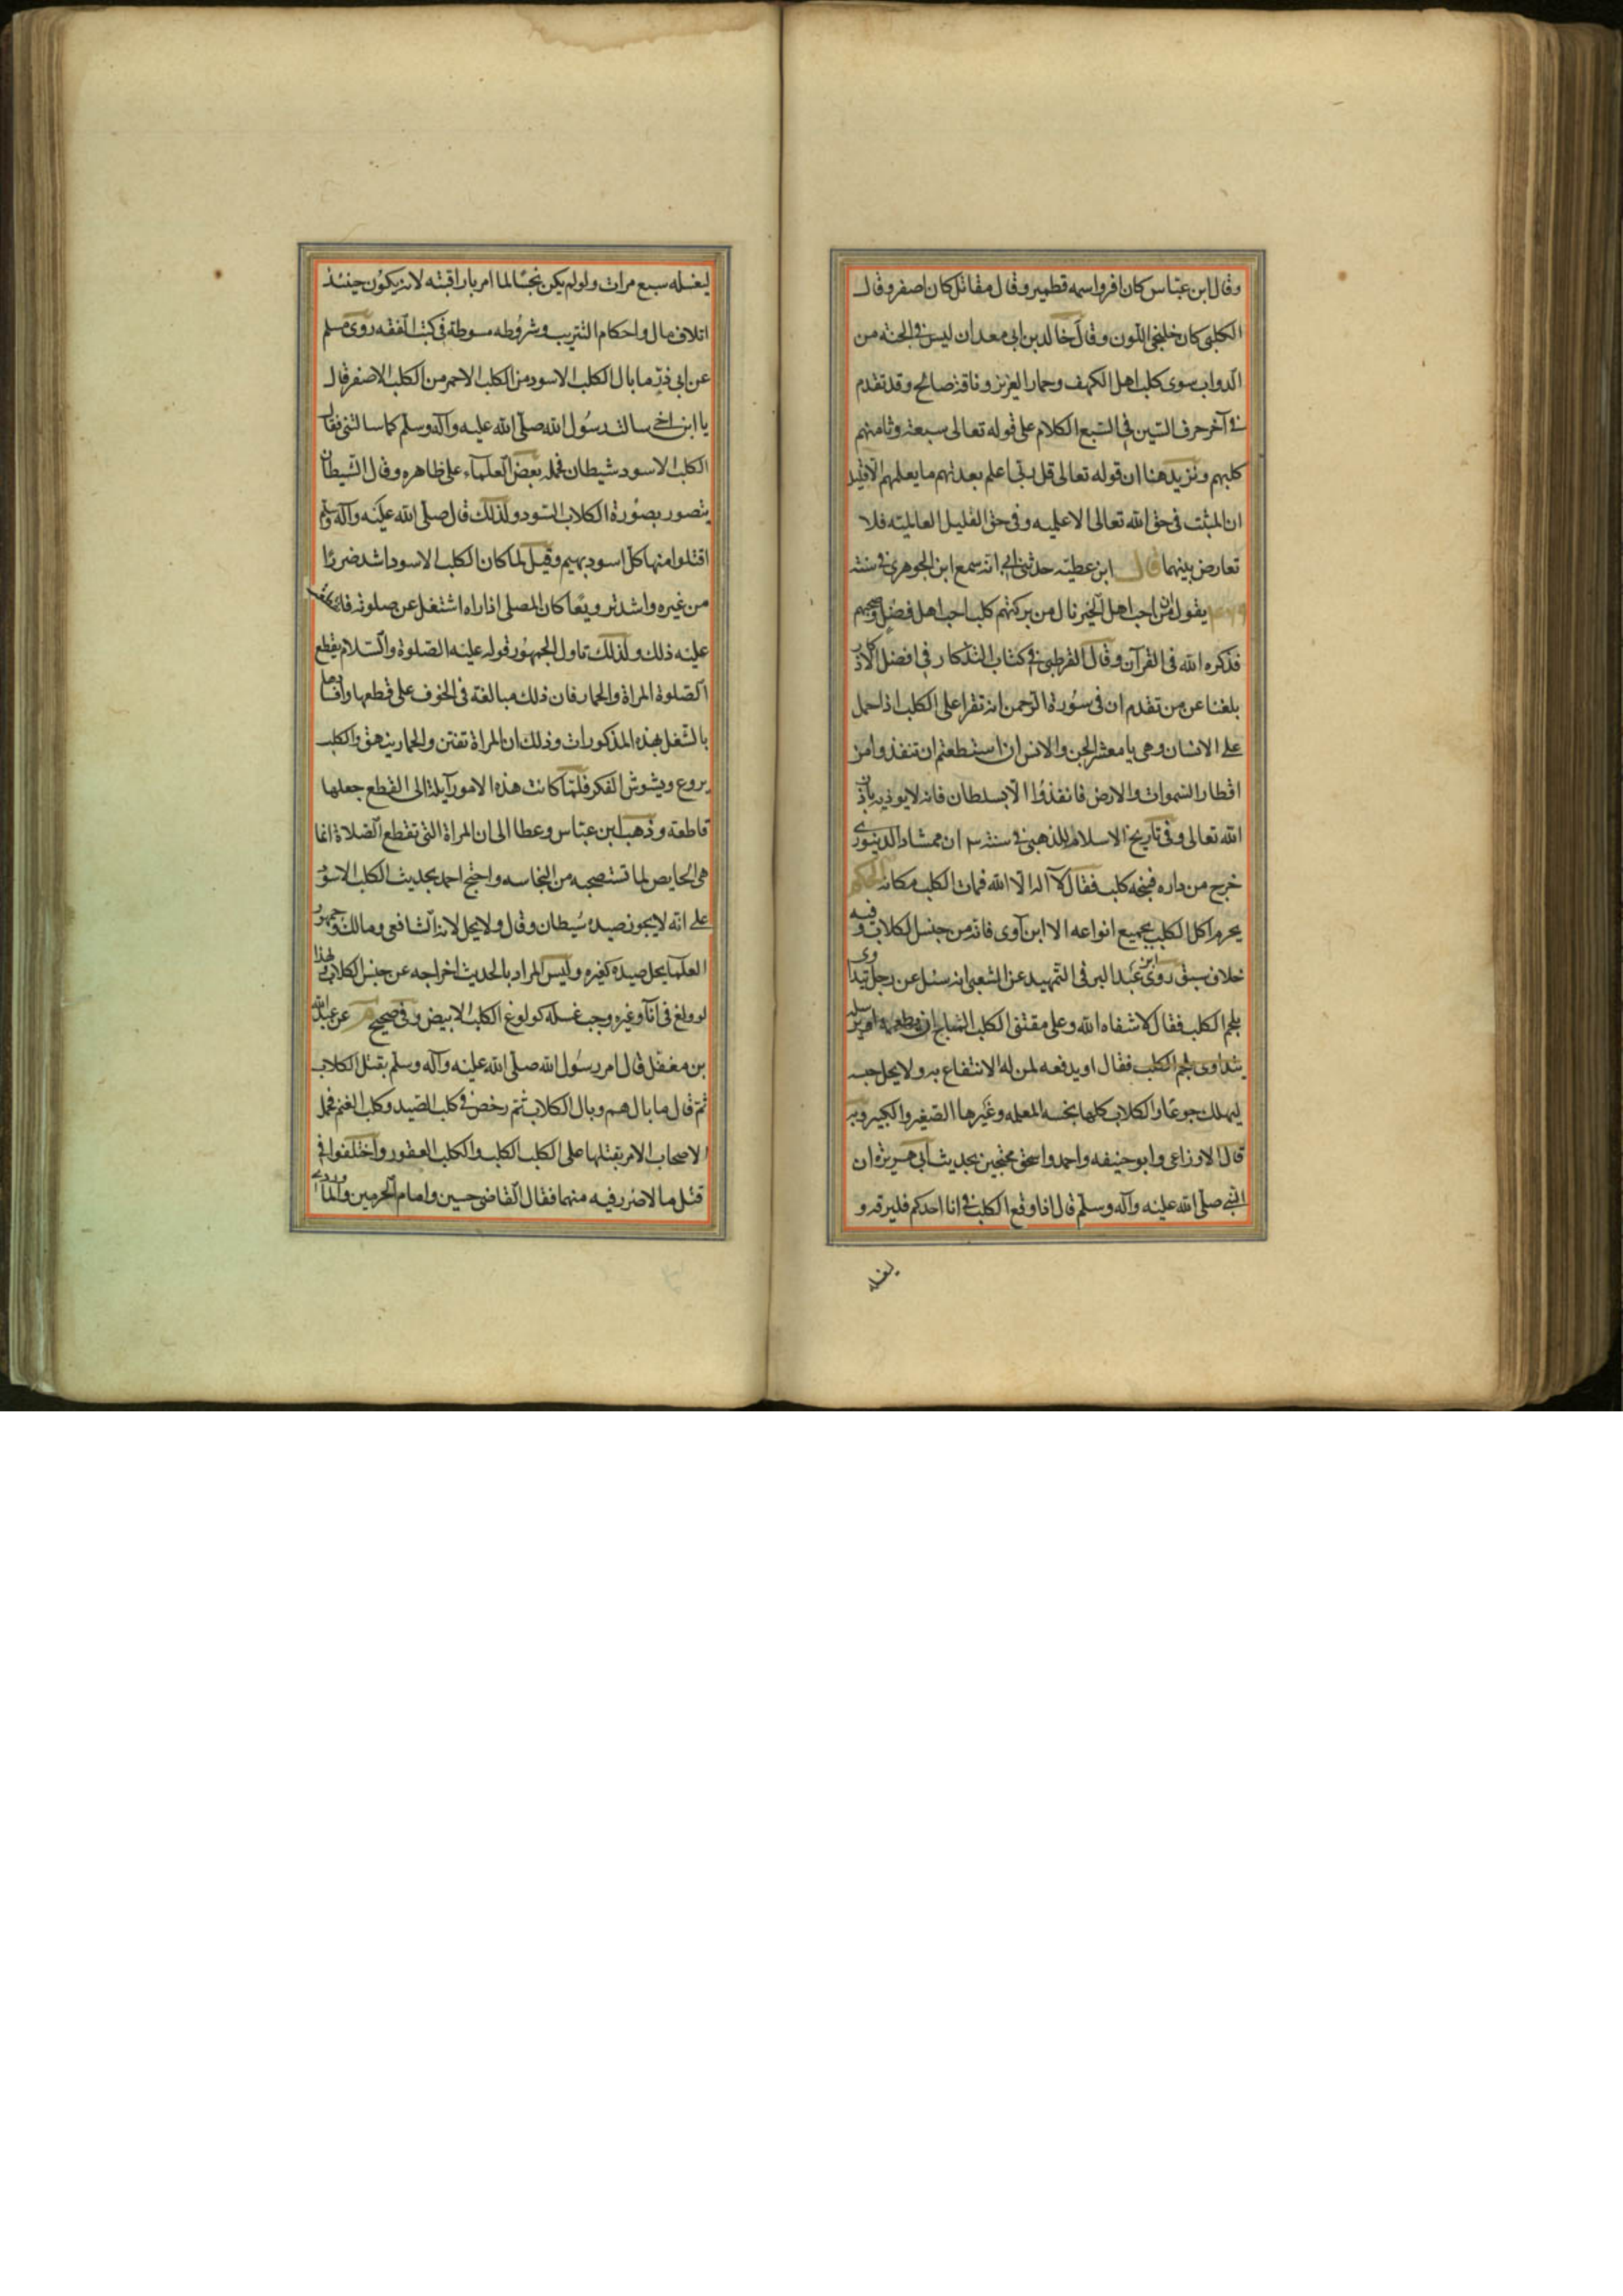 وقال ابن عباس كان افروا سمه قطمير وقال مقاتل كان اصفر وقال
الكلبي كان خلنجي اللون وقال خالد بن ابي معدان ليس في الجنه من
الدواب سوى كلب اهل الكهف وحمار العزيز وناقة صالح وقد تقدم
في آخر حرف السين في السبع الكلام على قوله تعالى سبعة وثامنهم
كلبهم ونزيد هنا ان قوله تعالى قل ربي اعلم بعدتهم ما يعلمهم الا قليل
ان المثبت في حق الله تعالى الاعلميه وفي حق القليل العالميته فلا
تعارض بينهما قال ابن عطيه حدثني ابي انه سمع ابن الجوهري في سنة
يقول من احب اهل الخير نال من بركتهم كلب احب اهل فضل وصحبهم
فذكره الله في القرآن وقال القرطبي في كتاب التذكار في افضل الاذكار
بلغنا عن من تقدم ان في سورة الرحمن اية تقرا على الكلب اذا حمل
على الانسان وهي يا معشر الجن والانس ان استطعتم ان تنفذوا من
اقطار السموات والارض فانفذوا الا بسلطان فانه لا يوذيه باذن
الله تعالى وفي تاريخ الاسلام للذهبي في سنة ان ممشاد الدينوري
خرج من داره فنبحه كلب فقال لا اله الا الله فمات الكلب مكانه الحكم
يحرم اكل الكلب بجميع انواعه الا ابن آوى فانه من جنس الكلاب وفيه
خلاف سبق روى ابن عبد البر في التمهيد عن الشعبي انه سئل عن رجل يتداوى
بلحم الكلب فقال لا شفاه الله وعلى مقتنى الكلب المباح ان يطعمه او يرسله
يتداوى بلحم الكلب فقال او يدفعه لمن له الانتفاع به ولا يحل حبسه
ليهلك جوعا والكلاب كلها نجسه المعلمه وغيرها الصغير والكبير وبه
قال الاوزاعي وابو حنيفه واحمد واسحق محتجين بحديث ابي هريرة ان
النبي صلى الله عليه وآله وسلم قال اذا وقع الكلب في انا احدكم فليرقه و
ليغسله
ليغسله سبع مرات ولو لم يكن نجسا لما امر باراقبته لانه يكون حينئذ
اتلاف مال واحكام التتريب وشروطه مبسوطة في كتب الفقه روى مسلم
عن ابي ذر ما بال الكلب الاسود من الكلب الاحمر من الكلب الاصفر قال
يا ابن اخي سالت رسول الله صلى الله عليه وآله وسلم كما سالتني فقال
الكلب الاسود شيطان فحمله بعض العلماء على ظاهره وقال الشيطان
يتصور بصورة الكلاب السود ولذلك قال صلى الله عليه وآله وسلم
اقتلوا منها كل اسود بهيم وقيل لما كان الكلب الاسود اشد ضررا
من غيره واشد ترويعا كان المصلي اذا راه اشتغل عن صلوته
عليه ذلك ولذلك تاول الجمهور قوله عليه الصلوة والسلام يقطع
الصلوة المراة والحمار فان ذلك مبالغة في الخوف على قطعها وافسادها
بالشغل بهذه المذكورات وذلك ان المراة تفتن والحمار ينهق والكلب
يروع ويشوش الفكر فلما كانت هذه الامور آيلة الى القطع جعلها
قاطعة وذهب ابن عباس وعطا الى ان المراة التي تقطع الصلاة انما
هي الحايض لما تستصحبه من النجاسه واحتج احمد بحديث الكلب الاسود
على انه لا يجوز صيده شيطان وقال ولا يحل لانه الشافعي ومالك وجمهور
العلما يحل صيده كغيره وليس المراد بالحديث اخراجه عن جنس الكلاب لهذا
لو ولغ في اناء وغيره وجب غسله كولوغ الكلب الابيض وفي صحيح عن عبد الله
بن مغفل قال امر رسول الله صلى الله عليه وآله وسلم بقتل الكلاب
ثم قال ما بالهم وبال الكلاب ثم رخص في كلب الصيد وكلب الغنم فحمل
الاصحاب الامر بقتلها على الكلب الكلب والكلب العقور واختلفوا في
قتل ما لا ضرر فيه منهما فقال القاضي حسين وامام الحرمين والماوردي